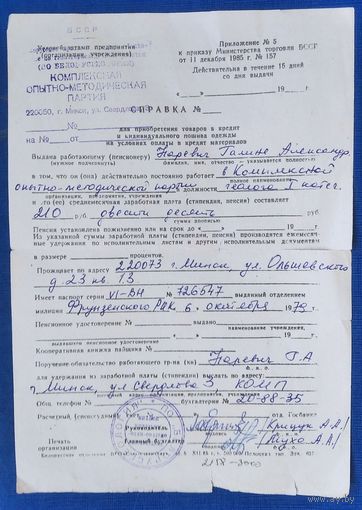 БССР
Приложение № 5
к приказу Министерства торговли БССР
от 11 декабря 1985 г. № 157
Действительна в течение 15 дней
со дня выдачи
КОМПЛЕКСНАЯ
ОПЫТНО-МЕТОДИЧЕСКАЯ
ПАРТИЯ
220050, г. Минск, ул. Свердлова
19 г.
СПРАВКА №
№
на № От
для приобретения товаров в кредит
и индивидуального пошива одежды
на условиях оплаты в кредит материалов
Выдана работающему (пенсионеру) Наревич Галине Александр.
(нужное подчеркнуть) фамилия, имя, отчество — указывается полностью
в том, что он (она) действительно постоянно работает в Комплексной
опытно-методической партии должности геолога I катег.
организации, предприятия, учреждения
и его (ее) среднемесячная заработная плата (стипендия, пенсия) составляет
210 р/б двести десять руб.
Пенсия установлена пожизненно или на срок до 19 г.
Из указанной суммы заработной платы (стипендии, пенсии) производятся ежемесячные удержания по исполнительным листам и другим исполнительным документам
в размере процентов.
Проживает по адресу 220073 г. Минск, ул. Ольшевского
д 23 кв. 13
Имеет паспорт серии VI-БН № 726547 выданный отделением
милиции Фрунзенского 6 октября 1979 г.
Пенсионное удостоверение №
выданное
наименование учреждения,
19 г.
выдавшего пенсионное удостоверение
Кооперативная книжка пайщика №
Поручение обязательство работающего гр-на (ки) Наревич Г.А
для удержания из заработной платы (стипендии) выслать по адресу:
г. Минск, ул Свердлова 3 КОМП
Общ. телефон № бухгалтерии № 20-88-35
Расчетный (специальный) отд. Госбанке
Руководитель Крищук А.А.
Главный бухгалтер Муха А.А.
Печать
организации